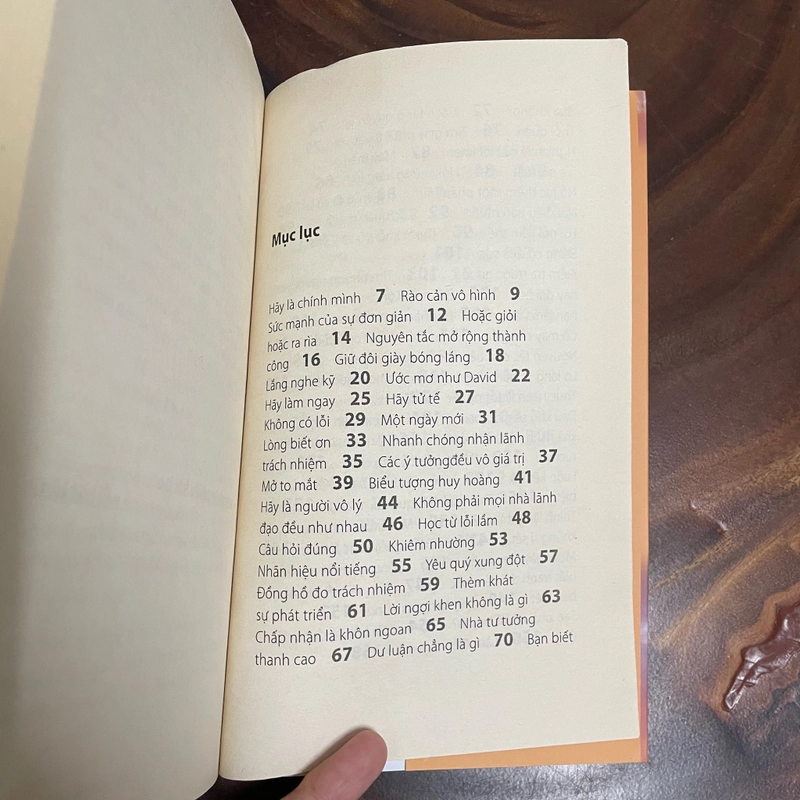 Mục lục
Hãy là chính mình 7 Rào cản vô hình 9
Sức mạnh của sự đơn giản 12 Hoặc giỏi
hoặc ra rìa 14 Nguyên tắc mở rộng thành
công 16 Giữ đôi giày bóng láng 18
Lắng nghe kỹ 20 Ước mơ như David 22
Hãy làm ngay 25 Hãy tử tế 27
Không có lỗi 29 Một ngày mới 31
Lòng biết ơn 33 Nhanh chóng nhận lãnh
trách nhiệm 35 Các ý tưởngđều vô giá trị 37
Mở to mắt 39 Biểu tượng huy hoàng 41
Hãy là người vô lý 44 Không phải mọi nhà lãnh
đạo đều như nhau 46 Học từ lỗi lầm 48
Câu hỏi đúng 50 Khiêm nhường 53
Nhãn hiệu nổi tiếng 55 Yêu quý xung đột 57
Đồng hồ đo trách nhiệm 59 Thèm khát
sự phát triển 61 Lời ngợi khen không là gì 63
Chấp nhận là khôn ngoan 65 Nhà tư tưởng
thanh cao 67 Dư luận chẳng là gì 70 Bạn biết